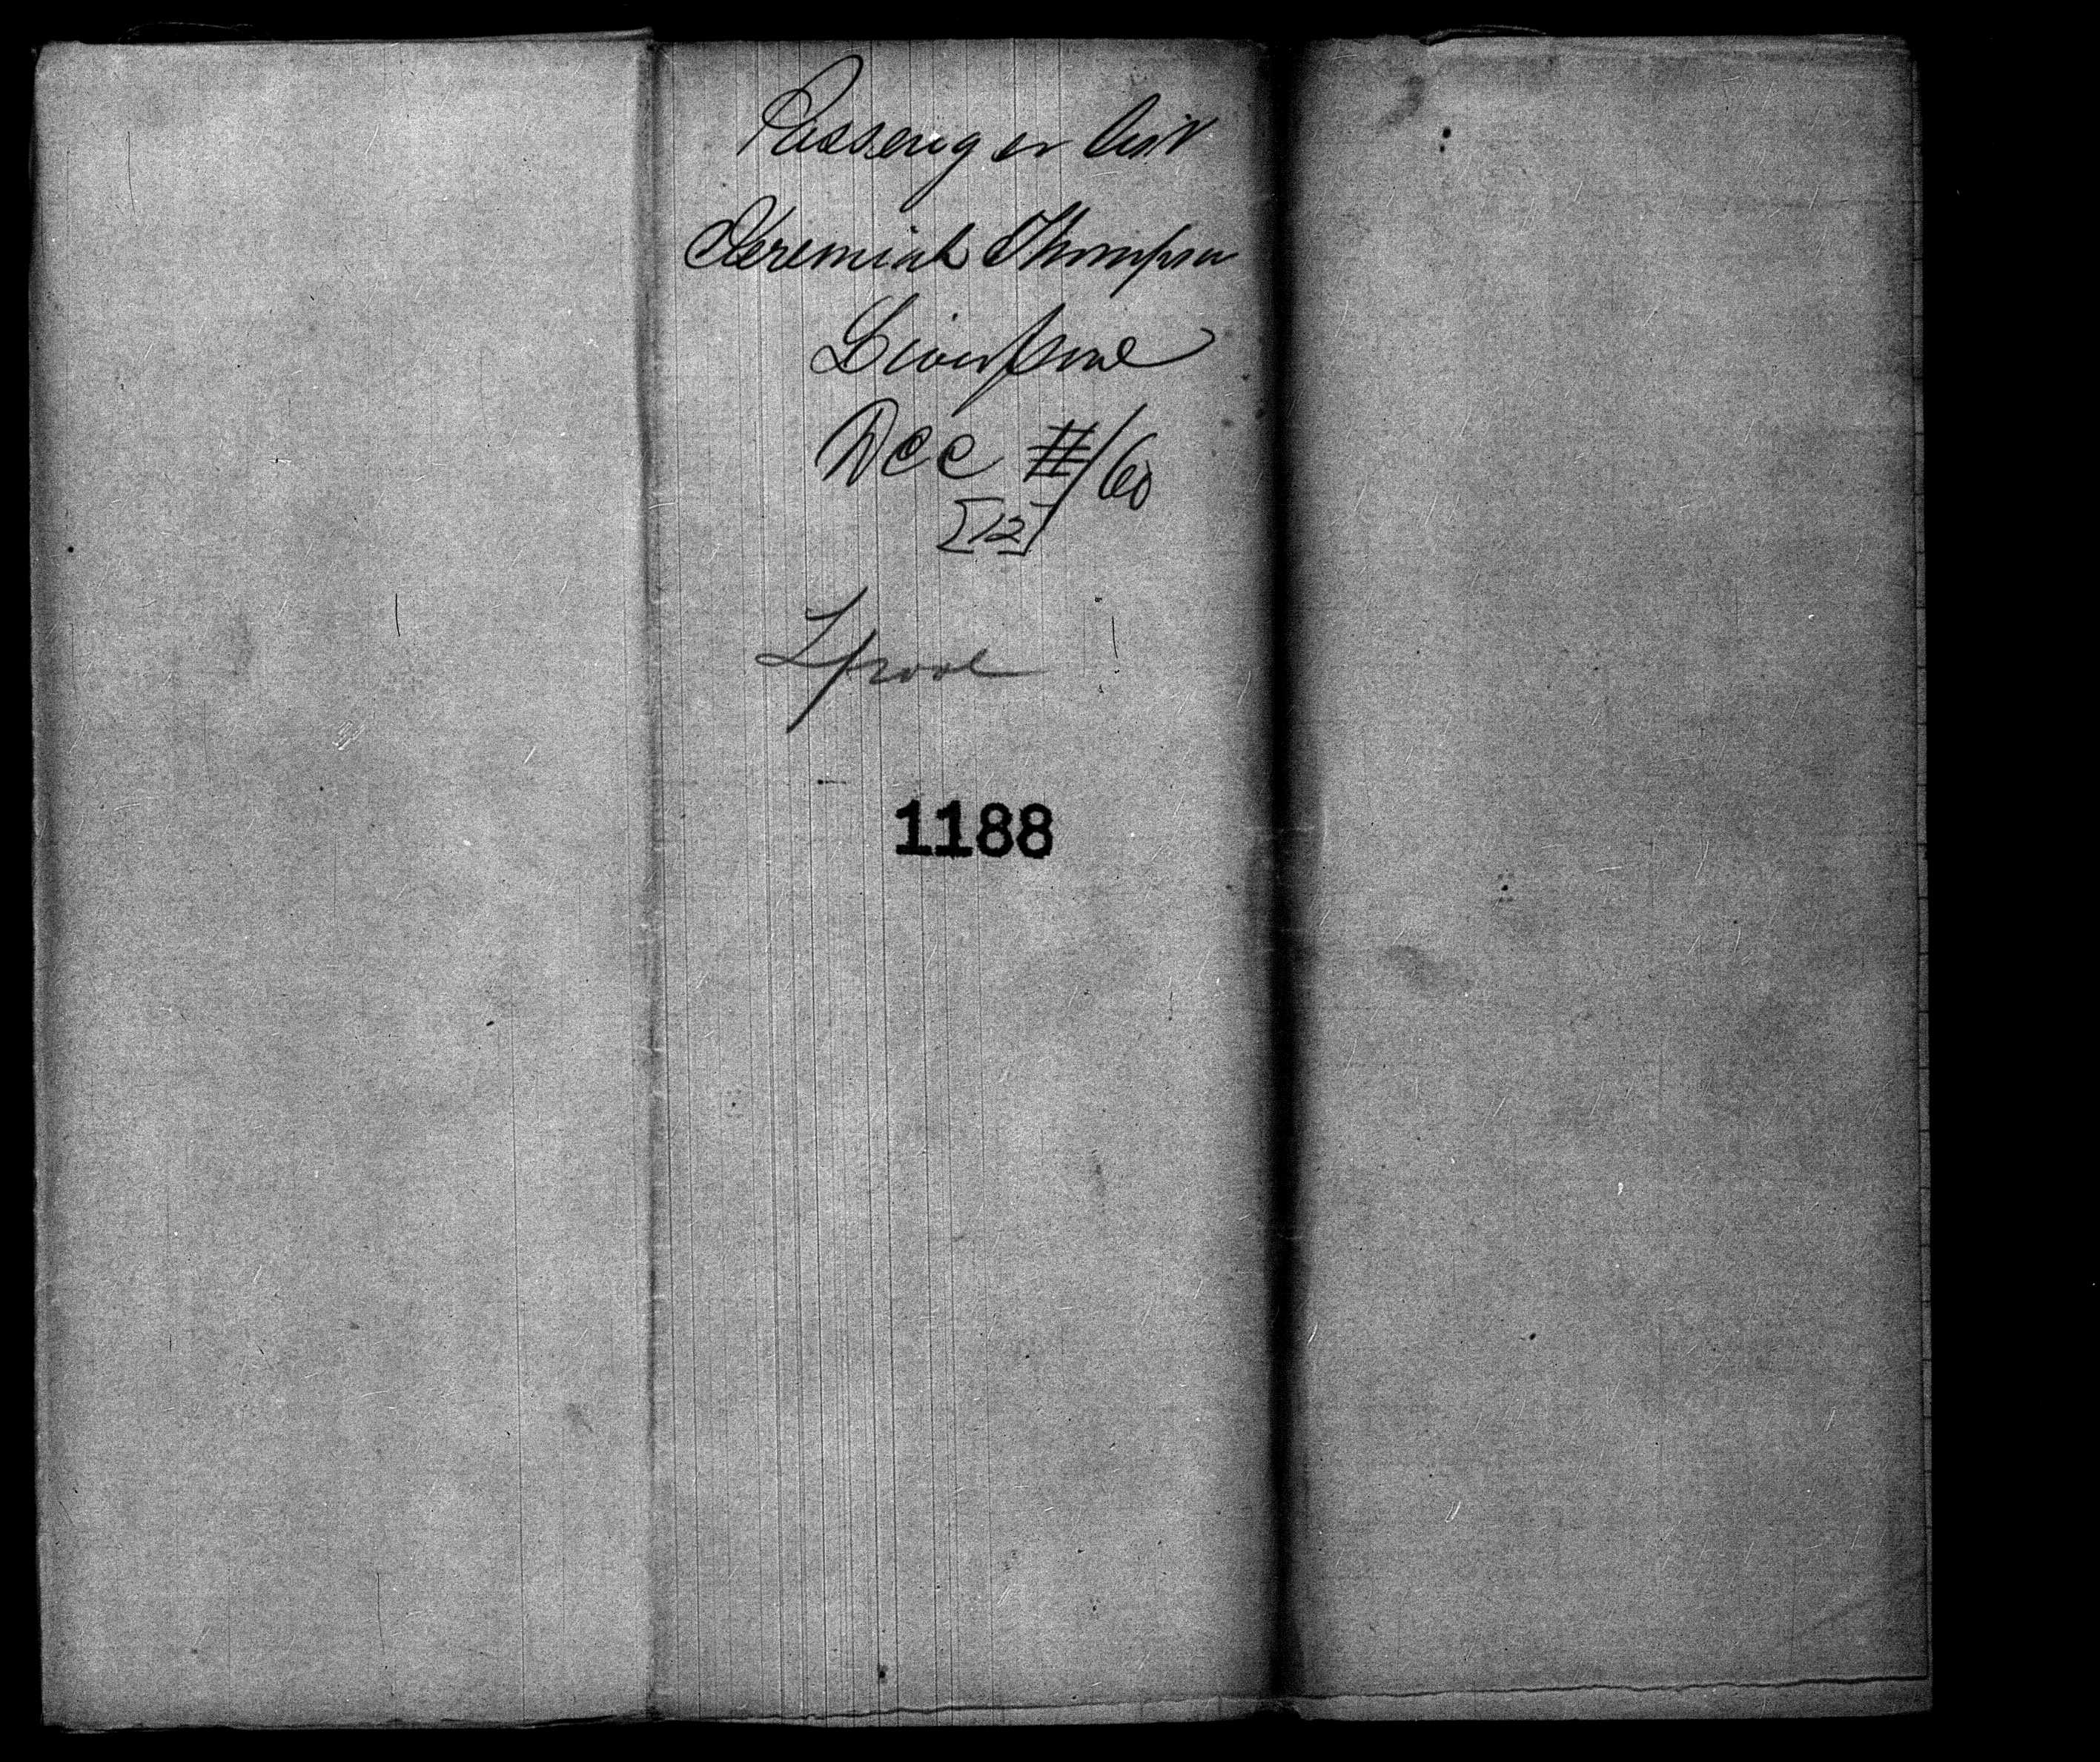 Passenger list
Jeremiah Thompson
Liverpool
Dec 11/60
[12]
Lpool
1188